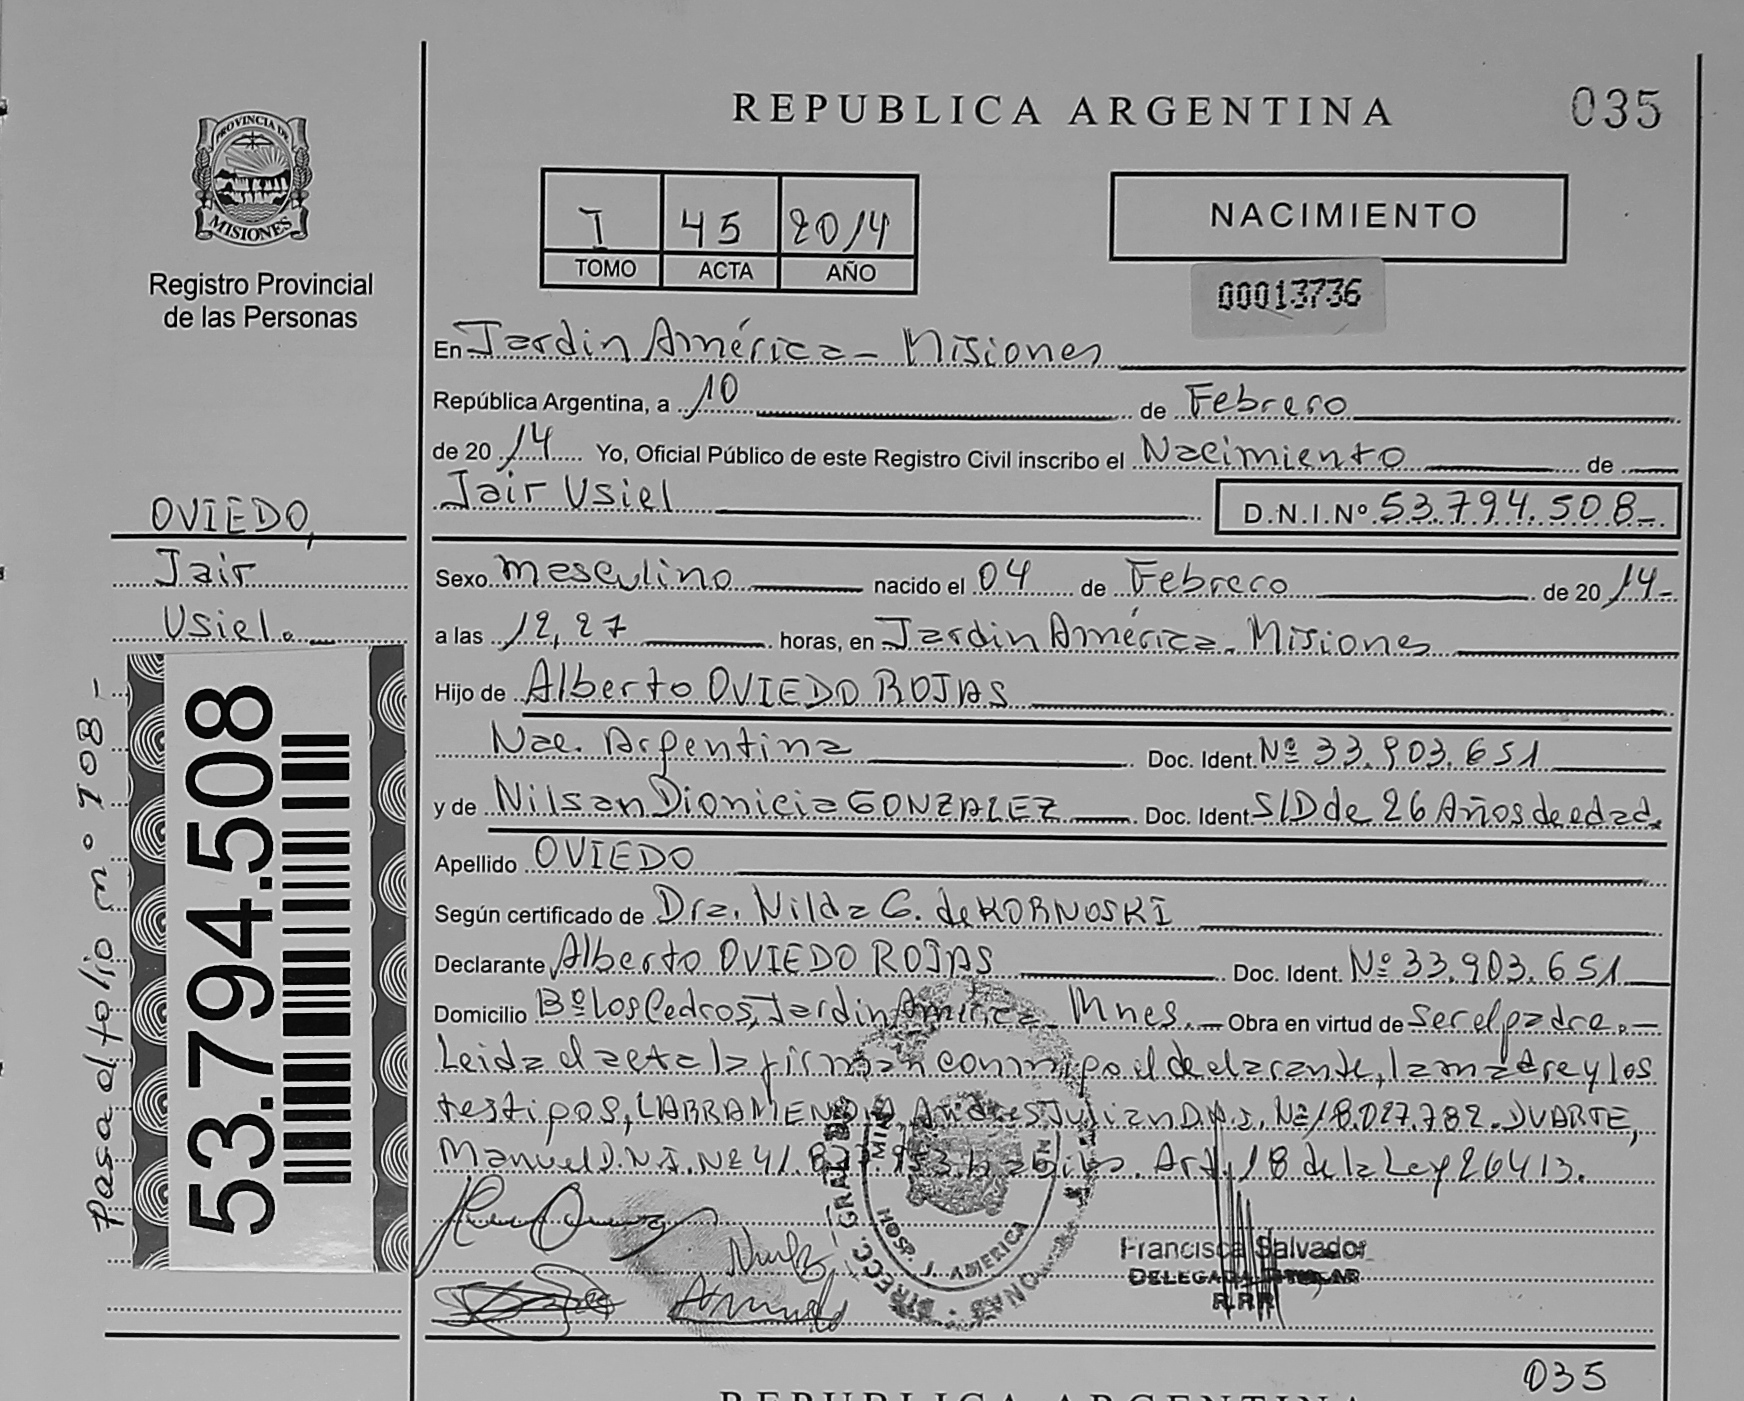 REPUBLICA ARGENTINA
035
PROVINCIA DE
MISIONES
Registro Provincial
de las Personas
I 45 2014
TOMO ACTA AÑO
NACIMIENTO
00013736
En Jardin América - Misiones
República Argentina, a 10 de Febrero
de 2014 Yo, Oficial Público de este Registro Civil inscribo el Nacimiento de
Jair Usiel D.N.I.Nº 53.794.508-
OVIEDO,
Jair
Usiel.
Sexo masculino nacido el 04 de Febrero de 2014-
a las 12,27 horas, en Jardin América. Misiones
Hijo de Alberto OVIEDO ROJAS
Nac. Argentina Doc. Ident. Nº 33.903.651
y de Nilsan Dionicia GONZALEZ Doc. Ident. S/D de 26 Años de edad.
Apellido OVIEDO
Según certificado de Dra. Nilda G. de KORNOSKI
Declarante Alberto OVIEDO ROJAS Doc. Ident. Nº 33.903.651
Domicilio Bº Los Cedros, Jardin América - Mnes. - Obra en virtud de ser el padre.-
Leida el acta la firman conmigo el declarante, la madre y los
testigos, LARRAMENDIA, Andres Julian D.N.I. Nº 18.027.782. DUARTE,
Manuel D.N.I. Nº 41. habiles. Art. 18 de la Ley 26413.
Pasa al folio nº 108-
53.794.508
DIRECC. GRAL DE
HOSP. J. AMERICA
Francisca Salvador
DELEGADA TITULAR
R.P.P
035
REPUBLICA ARGENTINA